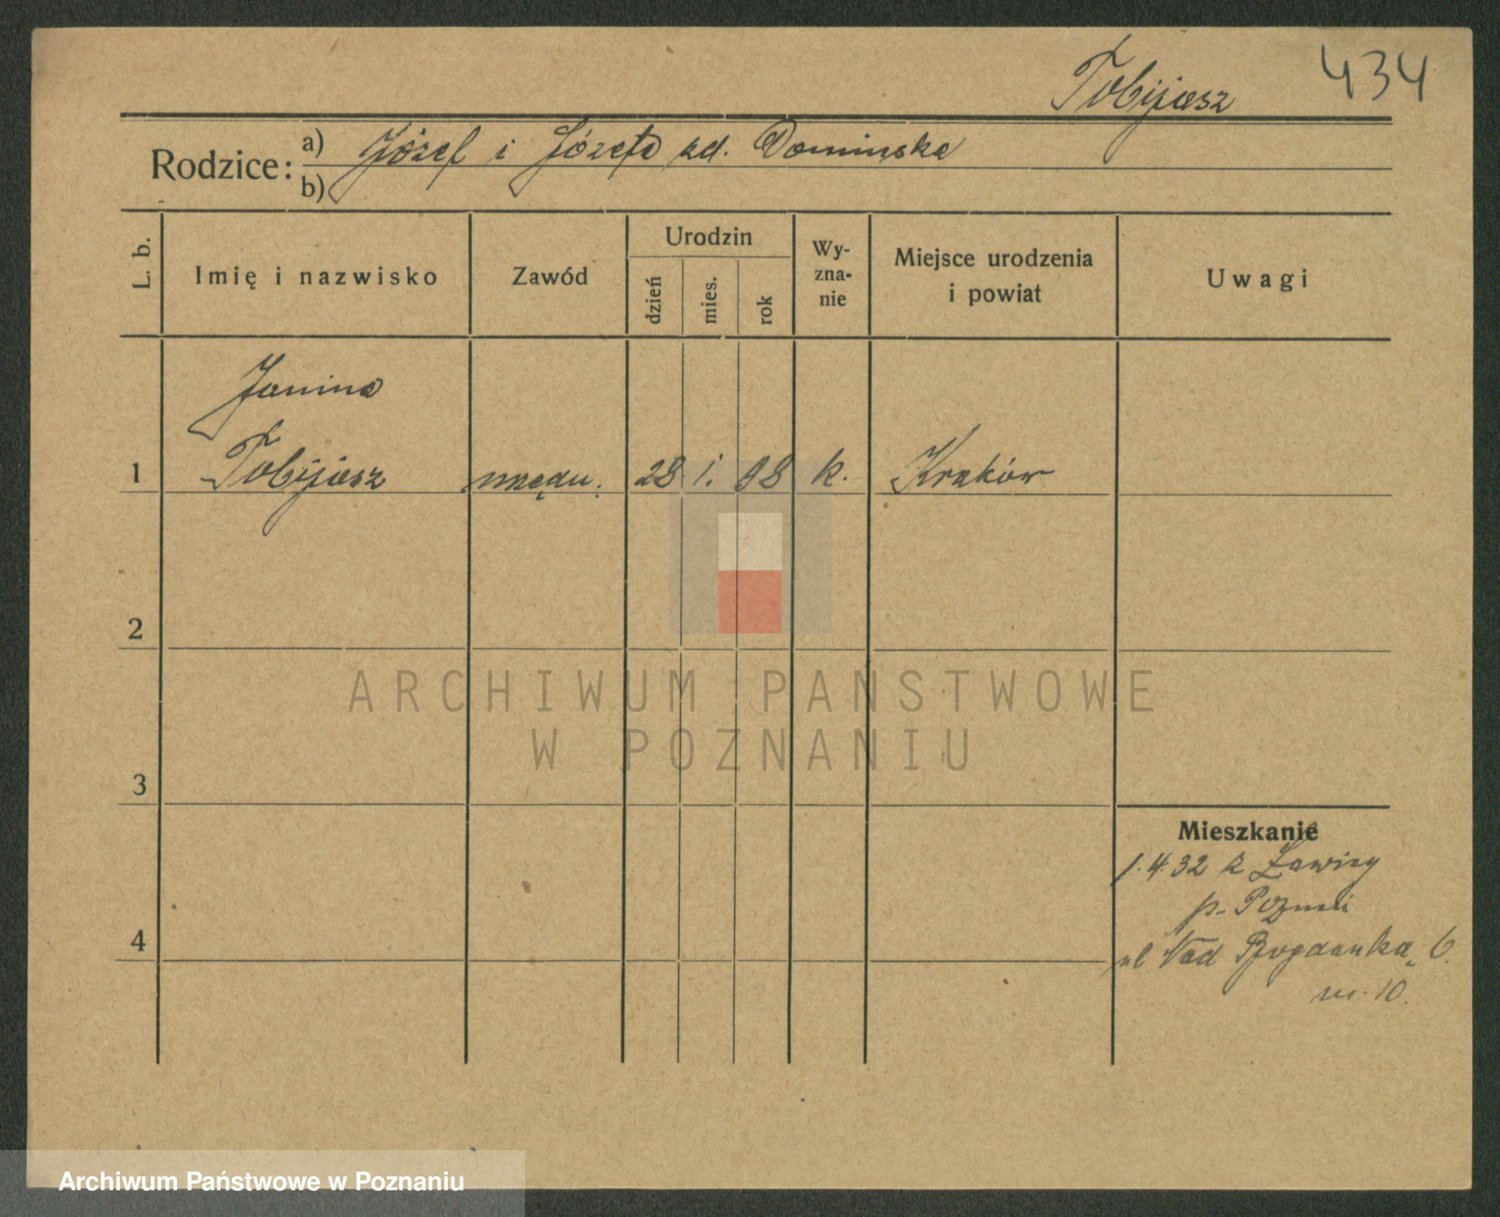 Tobijasz 434
Rodzice: a) Józef i Józefa zd. Domińska
b)
L. b. Imię i nazwisko Zawód Urodzin dzień mies. rok Wy-zna-nie Miejsce urodzenia i powiat Uwagi
Janina
1 Tobijasz urzędn. 28 1. 98 k. Kraków
2
ARCHIWUM PAŃSTWOWE
W POZNANIU
3
Mieszkanie
1.4.32 z Ławicy
p.
4 ul Nad Bogdanką 6.
m. 10.
Archiwum Państwowe w Poznaniu